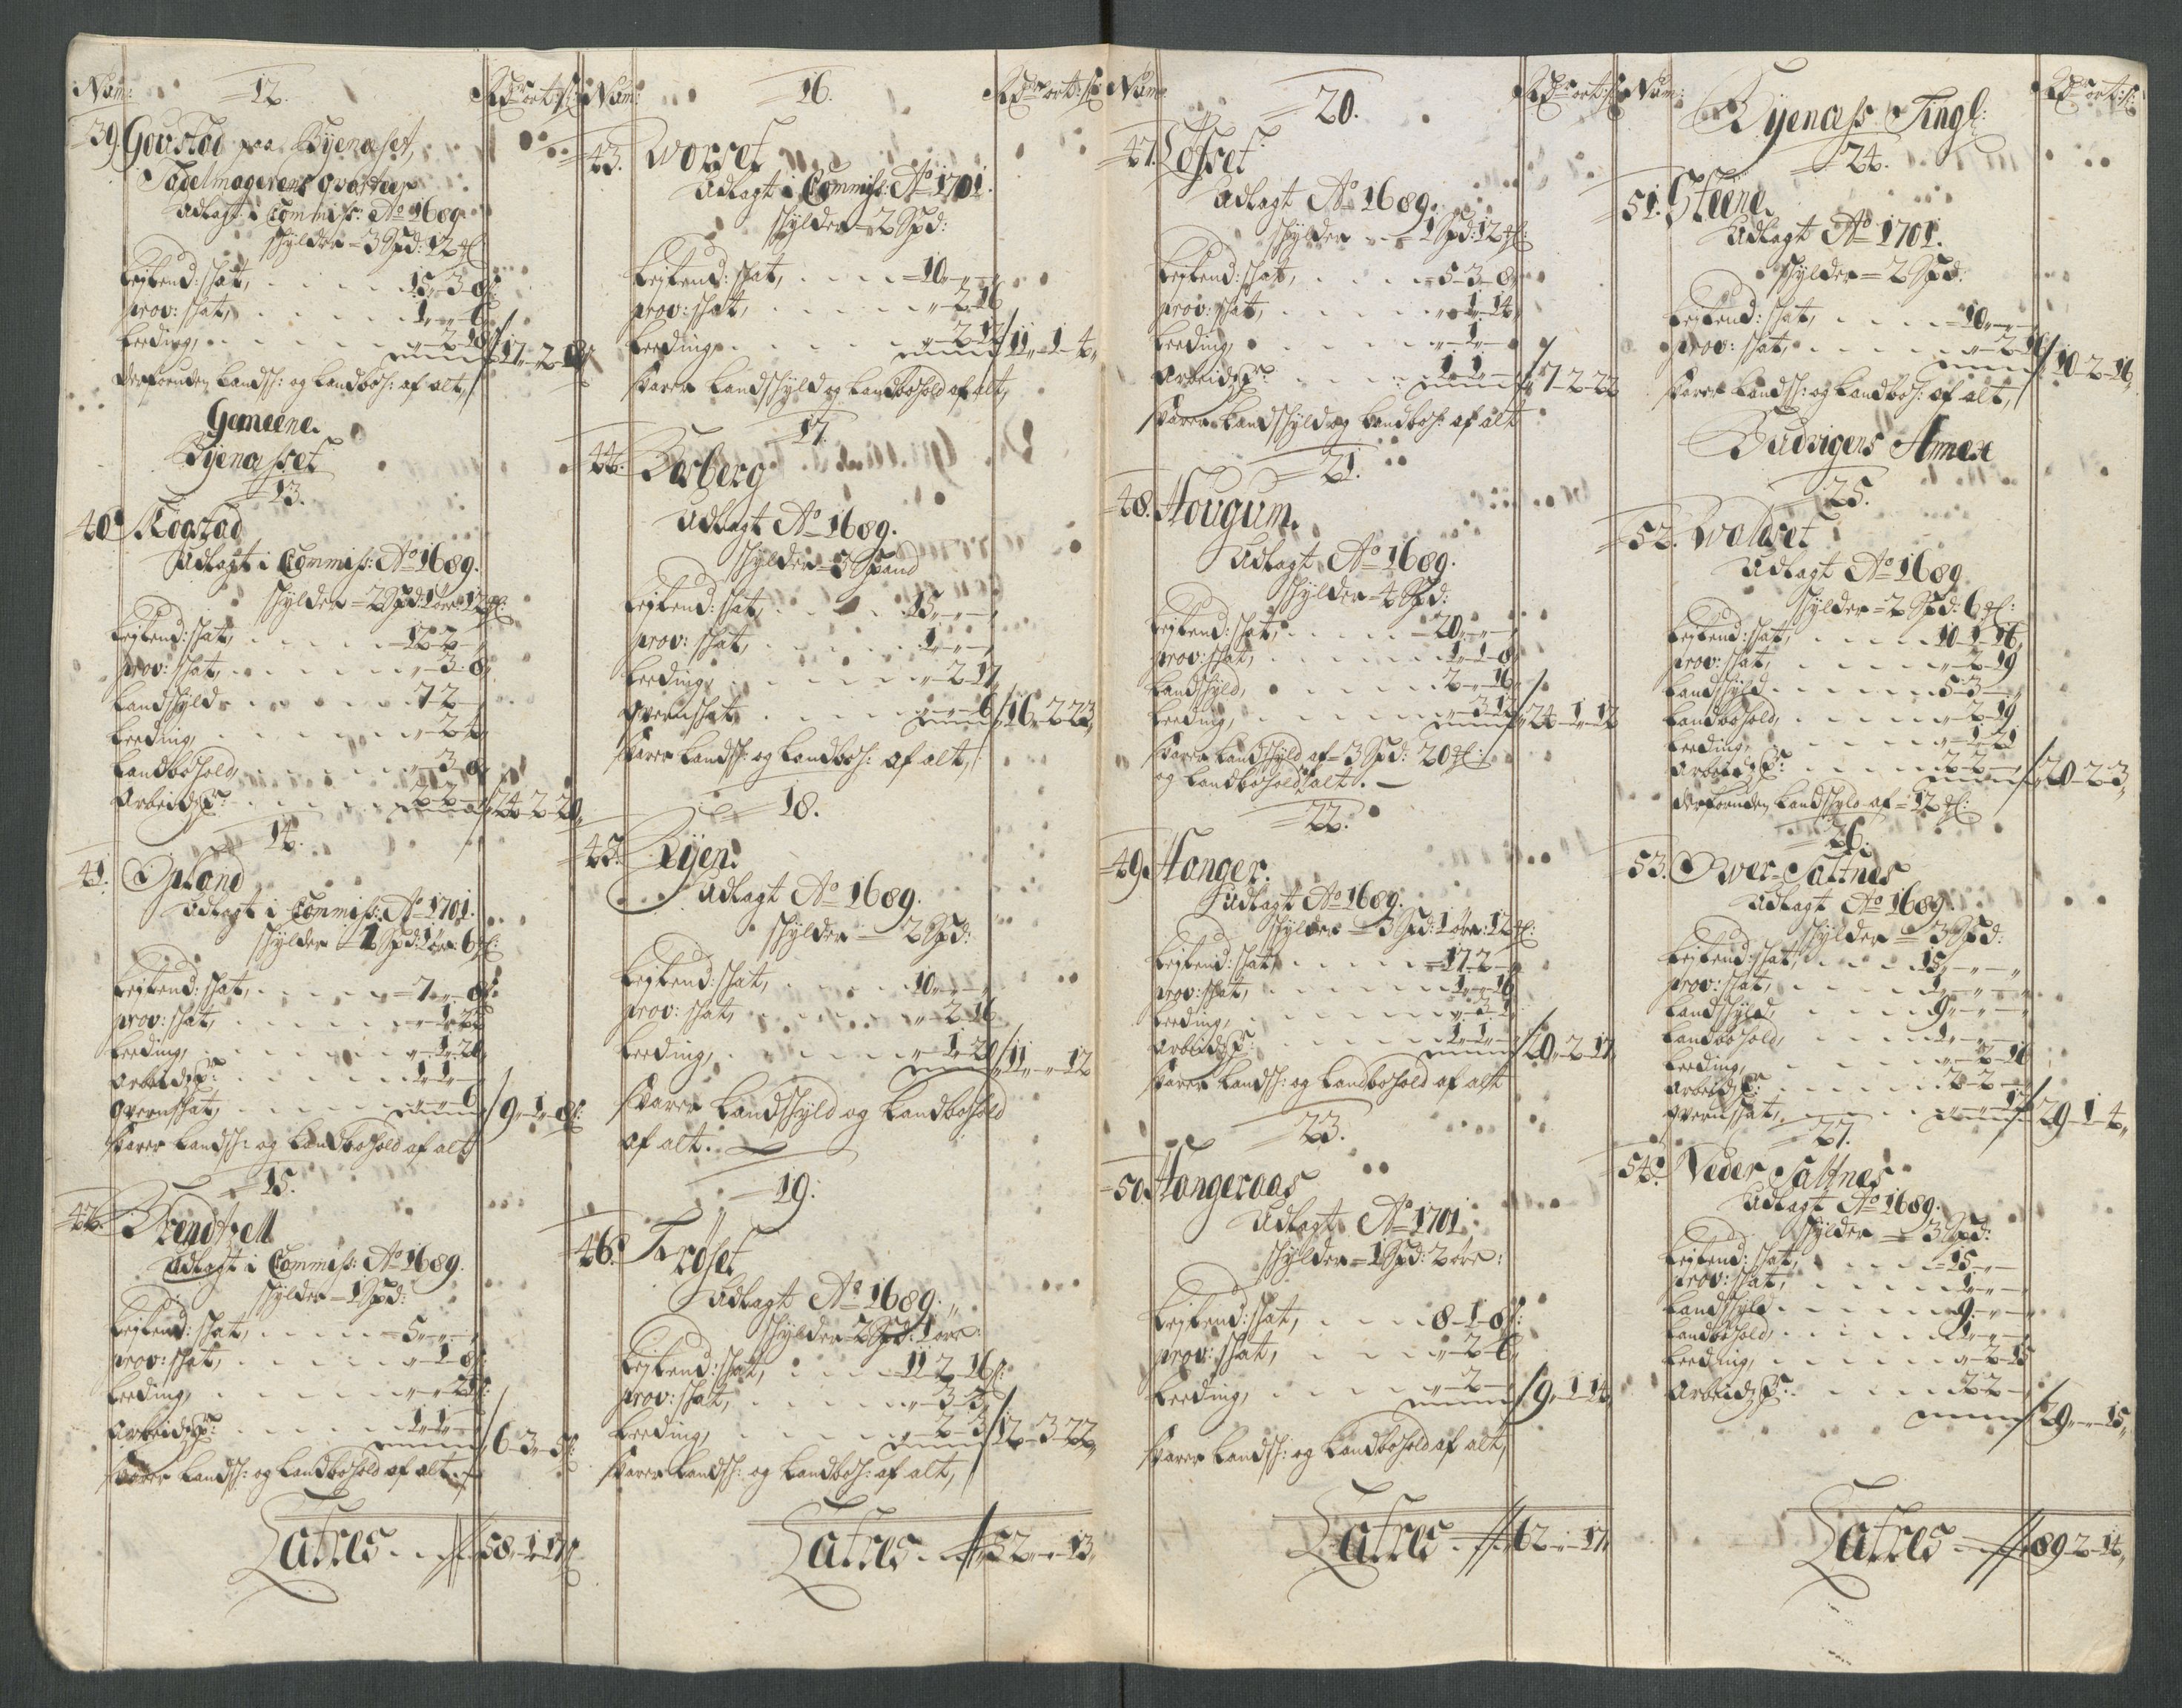 Num: 12. Rdr ort: s:
39. Goustad paa Byenæset,
Udlagt i Commiss: Ao 1689
schylder = 3 Spd: 12 ℔
Lejlend: schat, 15 - 3 - 8 s:
prov: schat, 1 „ - „ - 6
Leeding, „ - 2 - 18 / 17 - 2 - 18
derforuden Landsch: og Landboh: af alt,
Gemeene.
Byenæsset
13.
40. Rogstad
Udlagt i Commiss: Ao 1689.
schylder = 2 Spd: 1 øre 12 ℔:
Lejlend: schat, 12 - 2 -
prov: schat, „ - 3 - 8
Landschyld 7 - 2 -
Leeding, „ - 2 - 4
Landbohold, „ - 3 - 8
Arbeidsp: 2 - 2 - / 24 - 2 - 20
14.
41. Opland
Udlagt i Commiss: Ao 1701.
schylder = 1 Spd: 1 øre 6 ℔:
Lejlend: schat, 7 „ - „ - 8 s:
prov: schat, „ - 1 - 22
Leeding, „ - 1 - 20
Arbeidsp: 1 - 1 -
Qvernschat, „ - „ - 6 / 9 - 1 - 8 s:
svarer Landsch: og Landbohold af alt
15.
42.
Udlagt i Commiss: Ao 1689.
schylder = 1 Spd:
Lejlend: schat, 5 „ - „ -
prov: schat, „ - 1 - 8 s:
Leeding, „ - „ - 21 s:
Arbeidsp: 1 - 1 - / 6 - 3 - 5 s:
svarer Landsch: og Landbohold af alt.
Latres 58 - 1 - 17 s:
Num: 16. Rdr ort: s:
43. Worset
Udlagt i Commiss: Ao 1701.
schylder = 2 Spd:
Lejlend: schat, 10 „ - „ -
prov: schat, „ - 2 - 16
Leeding, „ - 2 - 12 / 11 - 1 - 4
svarer Landschyld og Landbohold af alt,
17.
44. Berberg
Udlagt Ao 1689.
schylder = 3 Spand
Lejlend: schat, 15 „ - „ -
prov: schat, 1 „ - „ -
Leeding, „ - 2 - 17
Qvernschat, „ - „ - 6 / 16 - 2 - 23
svarer Landsch: og Landboh: af alt,
18.
45. Ryen.
Udlagt Ao 1689.
schylder = 2 Spd:
Lejlend: schat, 10 „ - „ -
prov: schat, „ - 2 - 16
Leeding, „ - 1 - 20 / 11 „ - „ - 12
svarer Landschyld og Landbohold
af alt.
19.
46. Frøset
Udlagt Ao 1689.
schylder = 2 Spd: 1 øre:
Lejlend: schat, 11 - 2 - 16 s:
prov: schat, „ - 3 - 3
Leeding, „ - 2 - 3 / 12 - 3 - 22
svarer Landsch: og Landboh: af alt,
Latres 52 „ - „ - 13
Num: 20. Rdr ort: s:
47. Lofset
Udlagt Ao 1689.
schylder = 1 Spd: 12 ℔:
Lejlend: schat, 5 - 3 - 8
prov: schat, „ - 1 - 14
Leeding, „ - 1 -
Arbeidsp: 1 - 1 - / 7 - 2 - 22
svarer Landschyld og Landboh: af alt
21.
48. Hougum.
Udlagt Ao 1689.
schylder = 4 Spd:
Lejlend: schat, 20 „ - „ -
prov: schat, 1 - 1 - 8
Landschyld, 2 „ - 16
Leeding, „ - 3 - 12 / 24 - 1 - 12
svarer Landschyld af = 3 Spd: 20 ℔:
og Landbohold alt.
22.
49. Hanger.
Udlagt Ao 1689.
schylder = 3 Spd: 1 øre: 12 ℔:
Lejlend: schat, 17 - 2 -
prov: schat, 1 „ - 16
Leeding, „ - 3 - 1
Arbeidsp: 1 - 1 - / 20 - 2 - 17
svarer Landsch: og Landbohold af alt
23.
50. Hangeraas
Udlagt Ao 1701.
schylder = 1 Spd: 2 øre:
Lejlend: schat, 8 - 1 - 8 s:
prov: schat, „ - 2 - 6
Leeding, „ - 2 - / 9 - 1 - 14
svarer Landsch: og Landbohold af alt,
Latres 62 „ - „ - 17
Num: Byenæss Tingl: Rdr ort: s:
24.
51. Steene.
Udlagt Ao 1701.
schylder = 2 Spd:
Lejlend: schat, 10 „ - „ -
prov: schat, „ - 2 - 16 / 10 - 2 - 16
svarer Landsch: og Landboh: af alt,
Budvigens Annex
25.
52. Woldset
Udlagt Ao 1689
schylder = 2 Spd: 6 ℔:
Lejlend: schat, 10 - 1 - 16
prov: schat, „ - 2 - 19
Landschyld 5 - 3 -
Landbohold, „ - 2 - 19
Leeding, „ - 1 - 21
Arbeidsp: 2 - 2 - / 20 - 2 - 3
derforuden Landschyld af = 12 ℔:
26.
53. Øwer-Saltnes
Udlagt Ao 1689.
schylder = 3 Spd:
Lejlend: schat, 15 „ - „ -
prov: schat, 1 „ - „ -
Landschyld, 9 „ - „ -
Landbohold, 1 „ - „ -
Leeding, „ - 2 - 16
Arbeidsp: 2 - 2 -
Qvernschat, „ - „ - 12 / 29 - 1 - 4
27.
54. Neder Saltnes
Udlagt Ao 1689.
schylder = 3 Spd:
Lejlend: schat, 15 „ - „ -
prov: schat, 1 „ - „ -
Landschyld 9 „ - „ -
Landbohold, 1 „ - „ -
Leeding, „ - 2 - 15
Arbeidsp: 2 - 2 -
/ 29 „ - „ - 15
Latres 89 - 2 - 14